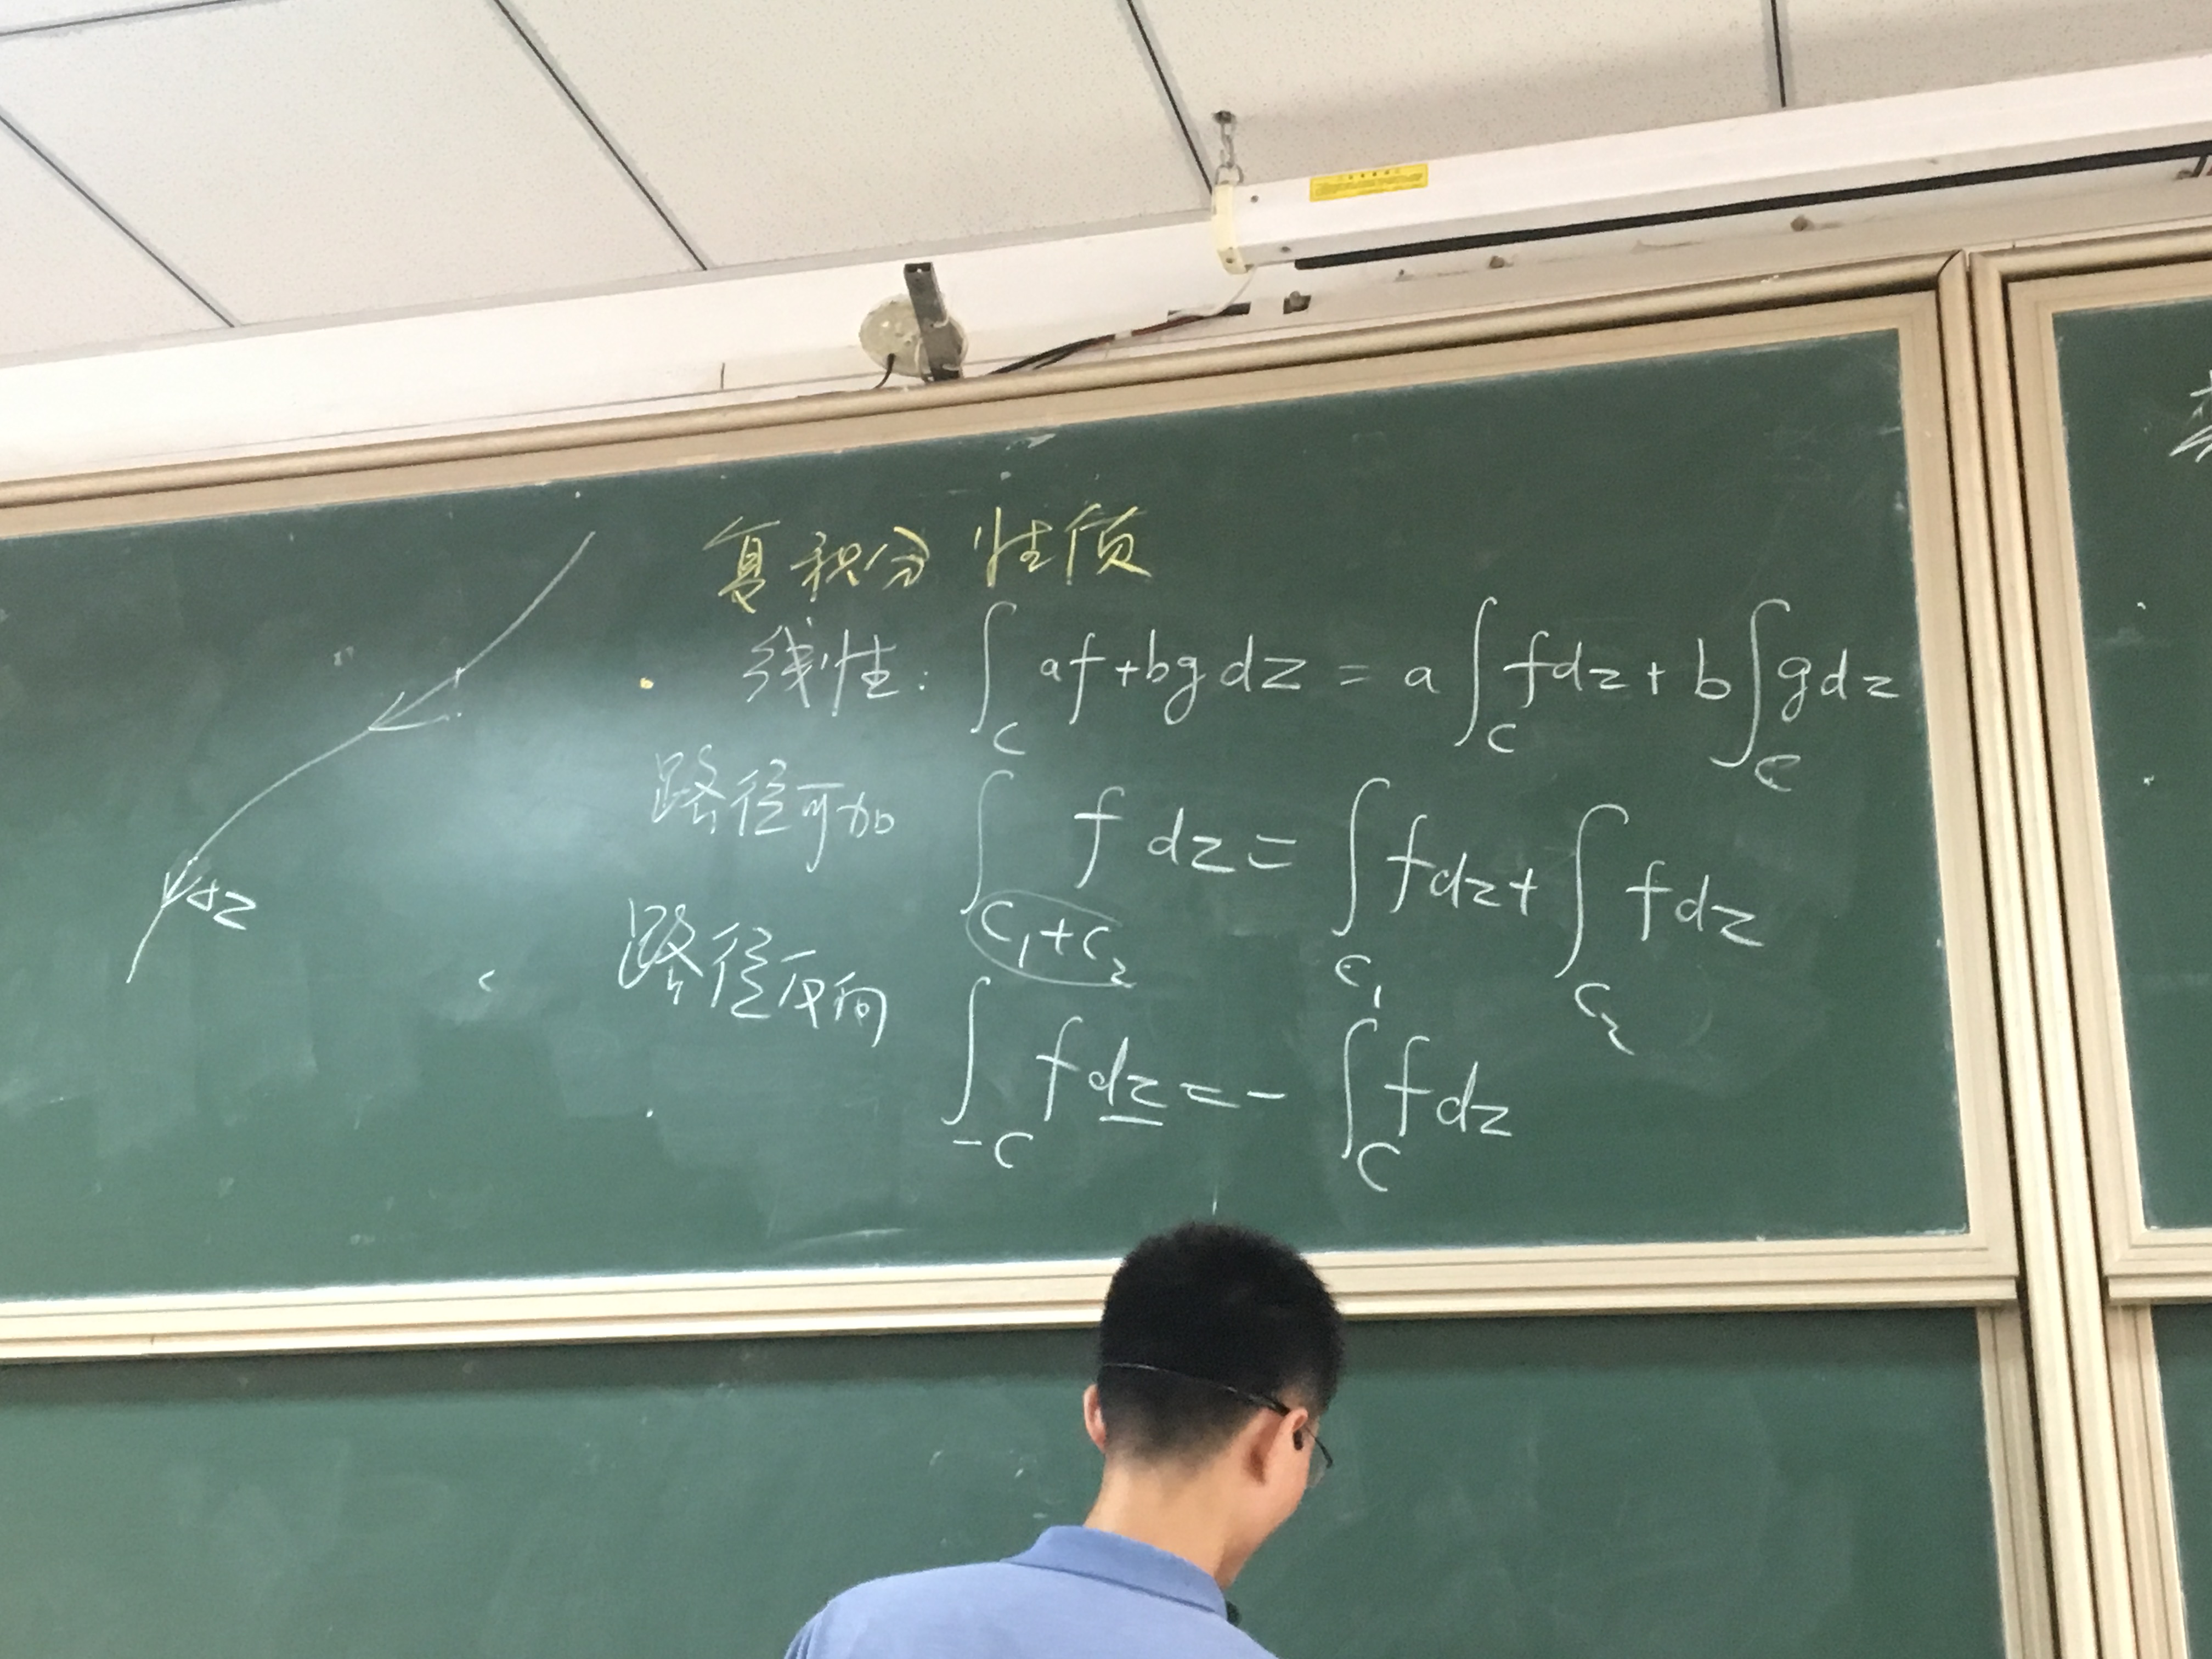 复积分 性质
线性: ∫_C af+bg dz = a∫_C fdz + b∫_C gdz
路径可加 ∫_{C₁+C₂} f dz = ∫_{C₁} fdz + ∫_{C₂} fdz
路径反向 ∫_{-C} fdz = - ∫_C fdz
dz